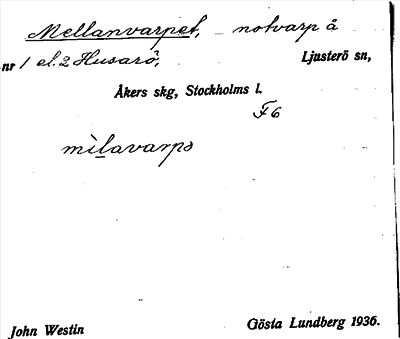 Mellanvarpet, notvarp å
nr 1 el. 2 Husarö, Ljusterö sn,
Åkers skg, Stockholms l.
F6
mìlavarps
John Westin Gösta Lundberg 1936.